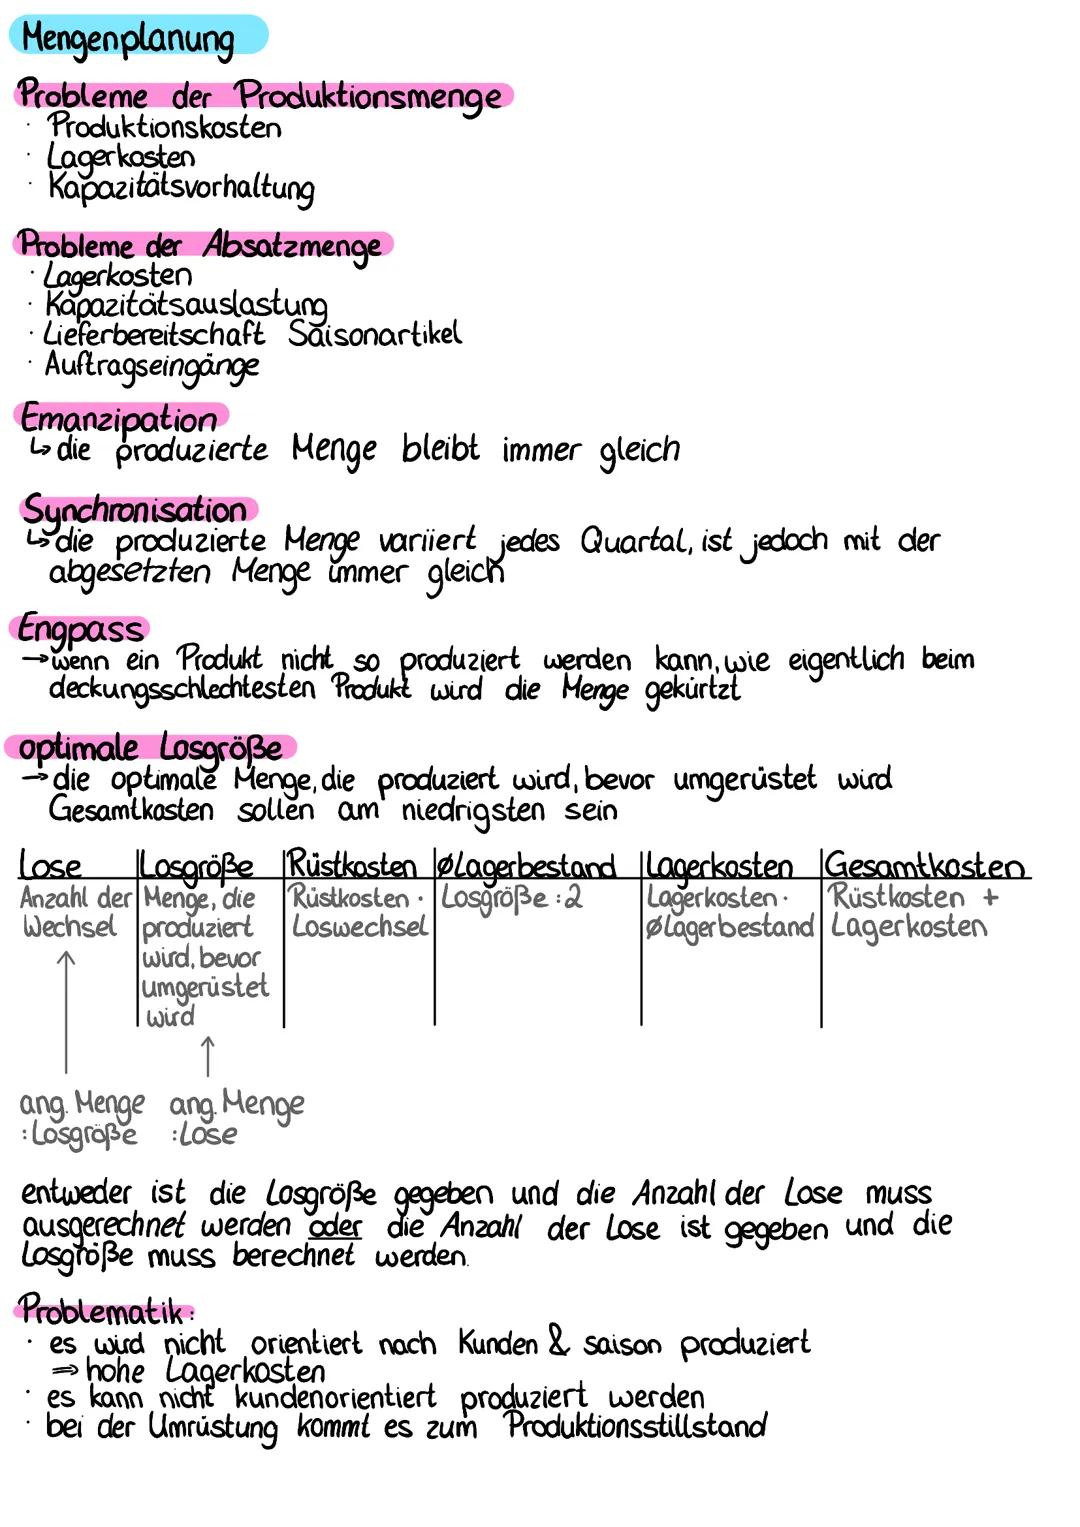 Mengenplanung
Probleme der Produktionsmenge
· Produktionskosten
· Lagerkosten
· Kapazitätsvorhaltung
Probleme der Absatzmenge
· Lagerkosten
· Kapazitätsauslastung
· Lieferbereitschaft Saisonartikel
· Auftragseingänge
Emanzipation
↳ die produzierte Menge bleibt immer gleich
Synchronisation
↳ die produzierte Menge variiert jedes Quartal, ist jedoch mit der
abgesetzten Menge immer gleich
Engpass
→ wenn ein Produkt nicht so produziert werden kann, wie eigentlich beim
deckungsschlechtesten Produkt wird die Menge gekürtzt
optimale Losgröße
→ die optimale Menge, die produziert wird, bevor umgerüstet wird
Gesamtkosten sollen am niedrigsten sein
Lose | Losgröße | Rüstkosten | ØLagerbestand | Lagerkosten | Gesamtkosten
Anzahl der | Menge, die | Rüstkosten · | Losgröße : 2 | Lagerkosten · | Rüstkosten +
Wechsel | produziert | Loswechsel | ØLagerbestand | Lagerkosten
wird, bevor
umgerüstet
wird
ang. Menge ang. Menge
: Losgröße : Lose
entweder ist die Losgröße gegeben und die Anzahl der Lose muss
ausgerechnet werden oder die Anzahl der Lose ist gegeben und die
Losgröße muss berechnet werden.
Problematik:
· es wird nicht orientiert nach Kunden & saison produziert
⇒ hohe Lagerkosten
· es kann nicht kundenorientiert produziert werden
· bei der Umrüstung kommt es zum Produktionsstillstand